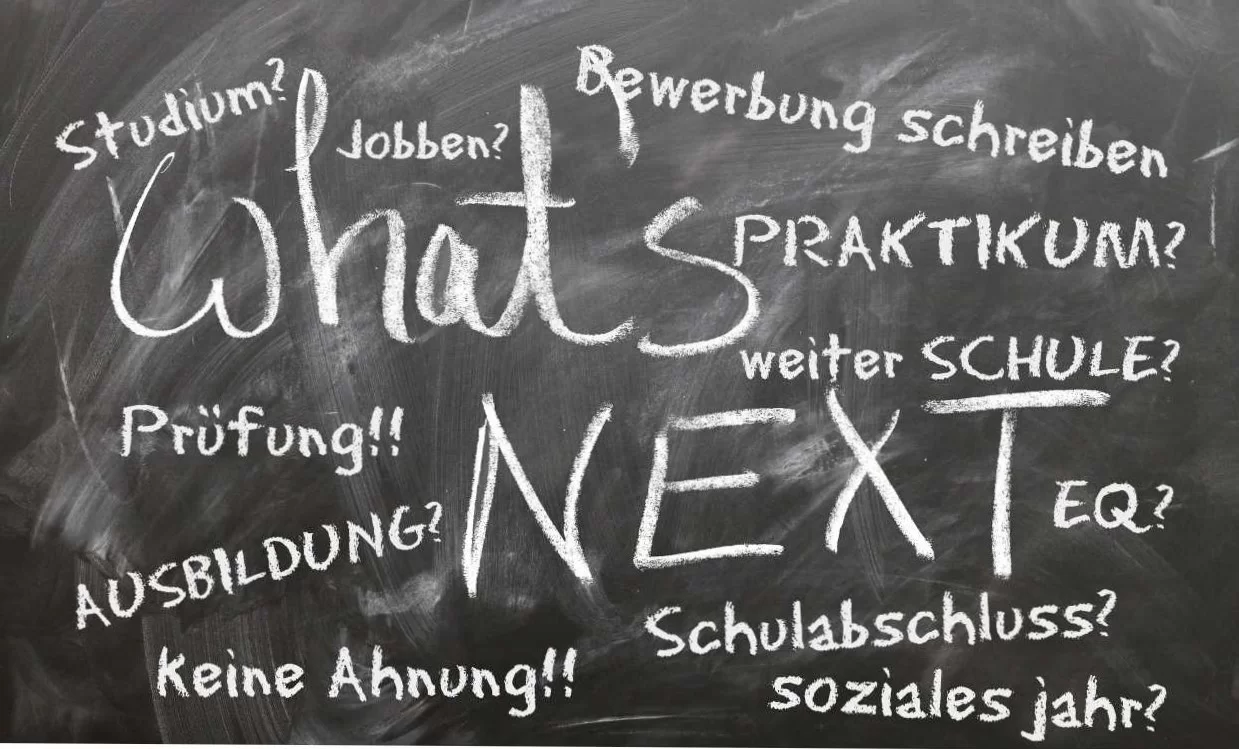 Studium?
Jobben?
Bewerbung schreiben
What's
PRAKTIKUM?
weiter SCHULE?
NEXT
Prüfung!!
EQ?
AUSBILDUNG?
Schulabschluss?
keine Ahnung!!
soziales jahr?